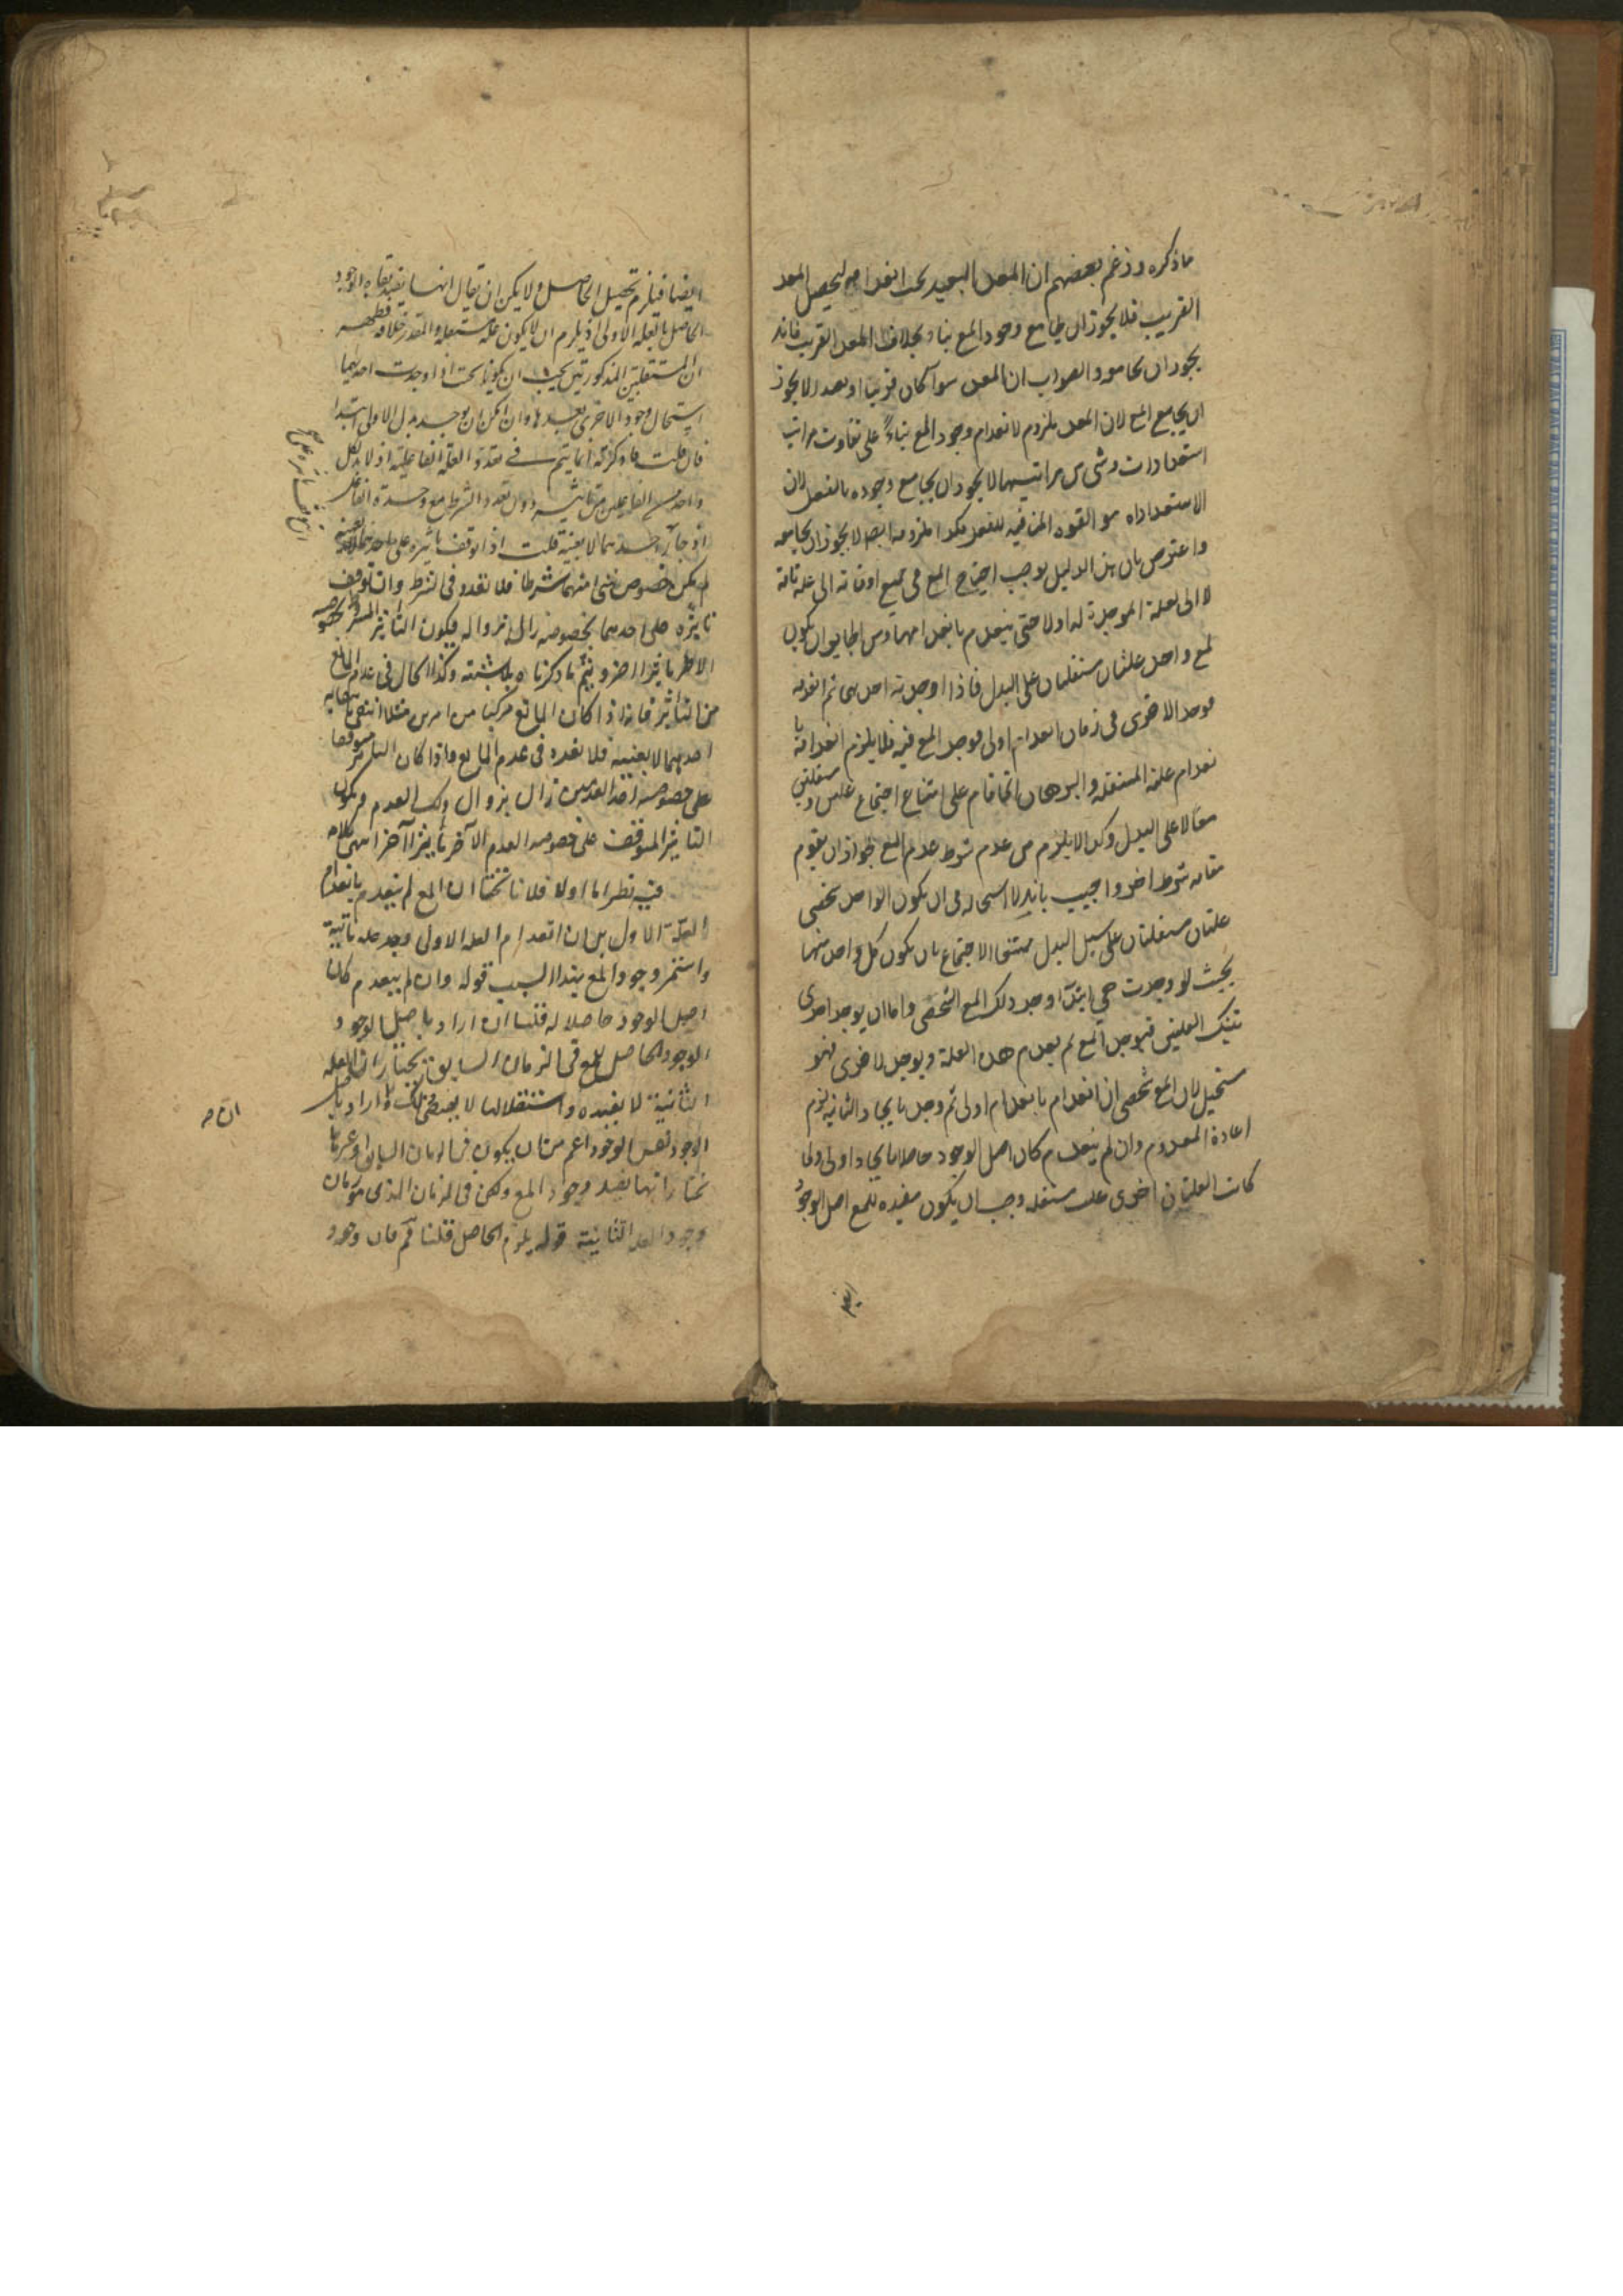 ماذكره وزعم بعضهم ان المعد البعيد يجب انعدامه ليحصل المعد
القريب فلا يجوز ان يجامع وجود المع بناء بخلاف المعد القريب فانه
يجوز ان يجامعه والصواب ان المعد سوآ كان قريبا او بعيدا لا يجوز
ان يجامع المع لان المعد ملزوم لانعدام وجود المع بناءً على تفاوت مراتب
استعدادات وشى من مراتبهما لا يجوز ان يجامع وجوده بالفعل لان
الاستعداد هو القوة المنافيه للفعل فكذا ملزومه ايضا لا يجوز ان يجامعه
واعترض بان هذا الدليل يوجب احتياج المع فى جميع اوقاته الى علة تامة
لا الى العلة الموجدة له اولا حتى ينعدم بانعدامها ومن الجايز ان يكون
لمع واحد علتان مستقلتان على البدل فاذا اوجدته احديهما ثم انعدمت
فوجد الاخرى فى زمان انعدام اولى فوجد المع فيه فلا يلزم انعدامه با
نعدام علته المستقله والبرهان انما قام على امتناع اجتماع علتين مستقلتين
معا لا على البدل وكذا لا يلزم من عدم شرط عدم المع لجواز ان يقوم
مقامه شرط اخر واجيب بانه لا استحاله فى ان يكون الواحد شخصى
علتان مستقلتان على سبيل البدل ممتنعا الاجتماع بان يكون كل واحد منهما
بحيث لو وجدت هى ابتدآ وجد ذلك المع الشخصى واما ان يوجد احدى
تينك العلتين فيوجد المع ثم يعدم هذه العلة ويوجد لاخرى فهو
مستحيل لان المع شخصى ان انعدم بانعدام اولى ثم وجد بايجاد الثانيه لزم
اعادة المعدوم وان لم ينعدم كان اصل الوجود حاصلا بايجاد اولى ولما
كانت العلتان اخرى علة مستقله وجب ان يكون مفيده للمع اصل الوجود
ايضا فيلزم تحصيل الحاصل ولا يمكن ان يقال انها يفيد بقاء الوجود
الحاصل بالعله الاولى اذ يلزم ان لا يكون علة مستقله والمقدر خلافه فظهر
ان المستقلتين المذكورتين يجب ان يكونا بحيث اذا وجدت احديهما
استحال وجود الاخرى بعدها وان امكن ان يوجد بدل الاولى ابتدا
فان قلت ما ذكرته انما يتم فى تعدد العلة الفاعلية اذ لا بد لكل
واحد من الفاعلين من تاثير دون تعدد الشرط مع وحدة الفاعل
اذ جاز احدهما لا بعينه قلت اذا توقف تاثيره على احدهما لا بعينه
لم يكن خصوص شى منهما شرطا فلا تعدد فى الشرط وان توقف
تاثيره على احدهما بخصوصه زال بزواله فيكون التاثير المشروط بخصوصه
الاخر تاثيرا اخر ويتم ما ذكرناه بلا شبهة وكذا الحال فى عدم المانع
من التاثير فانه اذا كان المانع مركبا من امرين مثلا انتفى بانتفاء
احدهما لا بعينه فلا تعدد فى عدم المانع واذا كان التاثير متوقفا
على خصوصية احد العدمين زال بزوال ذلك العدم ويكون
التاثير المتوقف على خصوصه العدم الآخر تاثيرا آخر انتهى كلامه
فيه نظر اما اولا فلانا نختار ان المع لم ينعدم بانعدام
العلة الاول بل ان انعدام العله الاولى وجد علة ثانية
واستمر وجود المع بهذا السبب قوله وان لم ينعدم كان
اصل الوجود حاصلا له قلنا ان اراد باصل الوجود
الوجود الحاصل للمع فى الزمان السابق فيختار ان العله
الثانية لا يفيده واستقلالها لا يقتضى ذلك وان اراد باصل
الوجود نفس الوجود اعم من ان يكون فى الزمان السابق او غيره
نختار انها تفيد وجود المع ولكن فى الزمان الذى هو زمان
وجود العلة الثانية قوله يلزم الحاصل قلنا ثم فان وجود